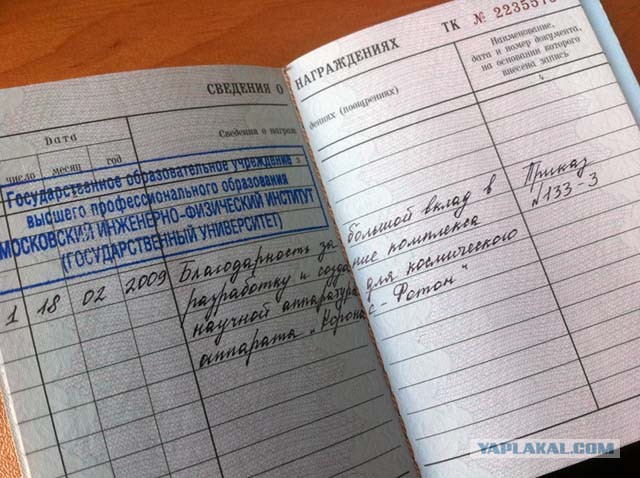 СВЕДЕНИЯ О НАГРАЖДЕНИЯХ
ТК № 2235575
Дата
число
месяц
год
Сведения о награж
дениях (поощрениях)
Наименование,
дата и номер документа,
на основании которого
внесена запись
3
4
Государственное образовательное учреждение
высшего профессионального образования
МОСКОВСКИЙ ИНЖЕНЕРНО-ФИЗИЧЕСКИЙ ИНСТИТУТ
(ГОСУДАРСТВЕННЫЙ УНИВЕРСИТЕТ)
1 18 02 2009 Благодарность за большой вклад в
разработку и создание комплекса
научной аппаратуры для космического
аппарата „Коронас-Фотон"
Приказ
№133-3
YAPLAKAL.COM